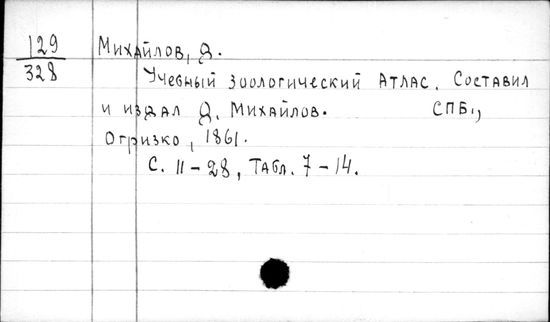 129
328
Михайлов, Д.
Учебный зоологический атлас. Составил
и издал Д. Михайлов. СПБ.,
Огризко, 1861.
С. 11-28, табл. 7-14.